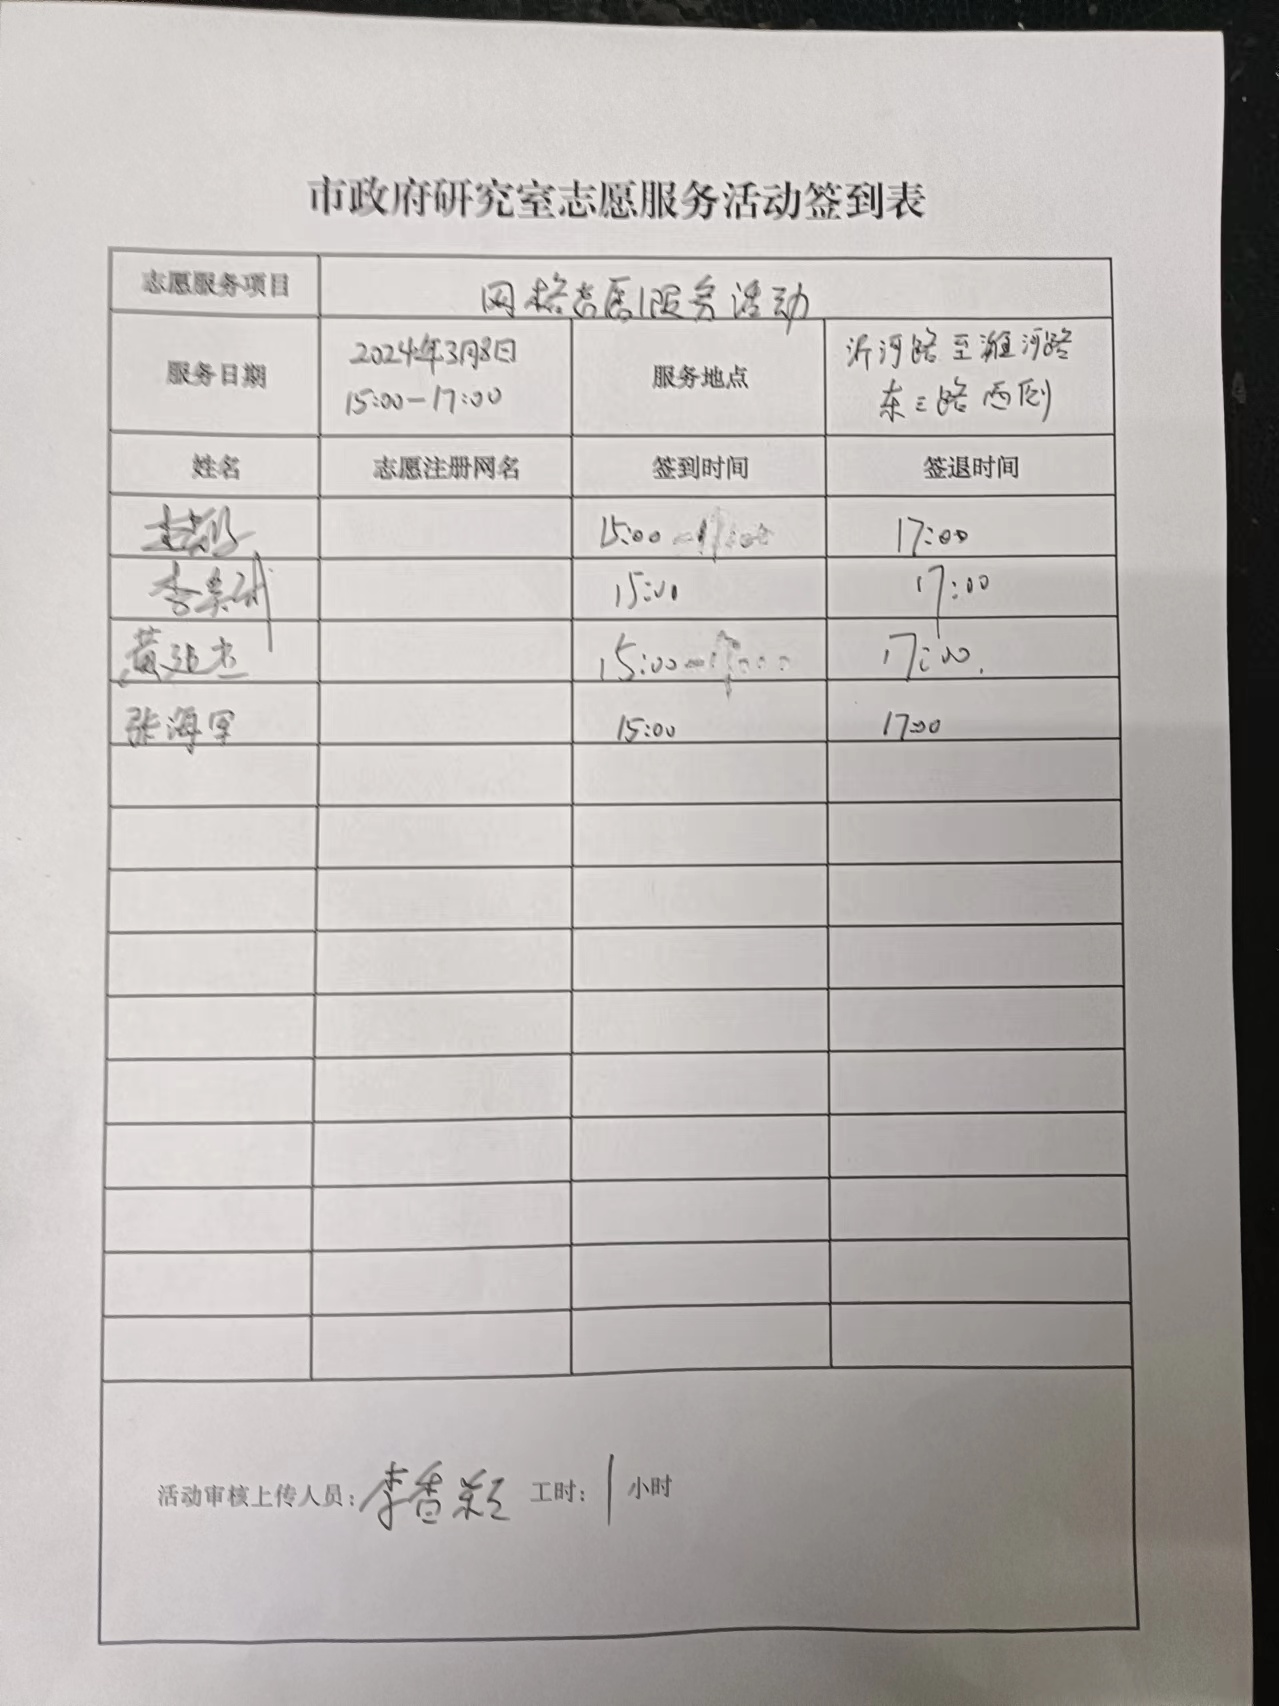 市政府研究室志愿服务活动签到表
志愿服务项目 网格志愿服务活动
服务日期 2024年3月8日 15:00-17:00 服务地点 沂河路至潍河路 东三路西侧
姓名 志愿注册网名 签到时间 签退时间
15:00 17:00
15:00 17:00
黄 杰 15:00 17:00.
张海军 15:00 17:00
活动审核上传人员: 李香颖 工时: 1 小时